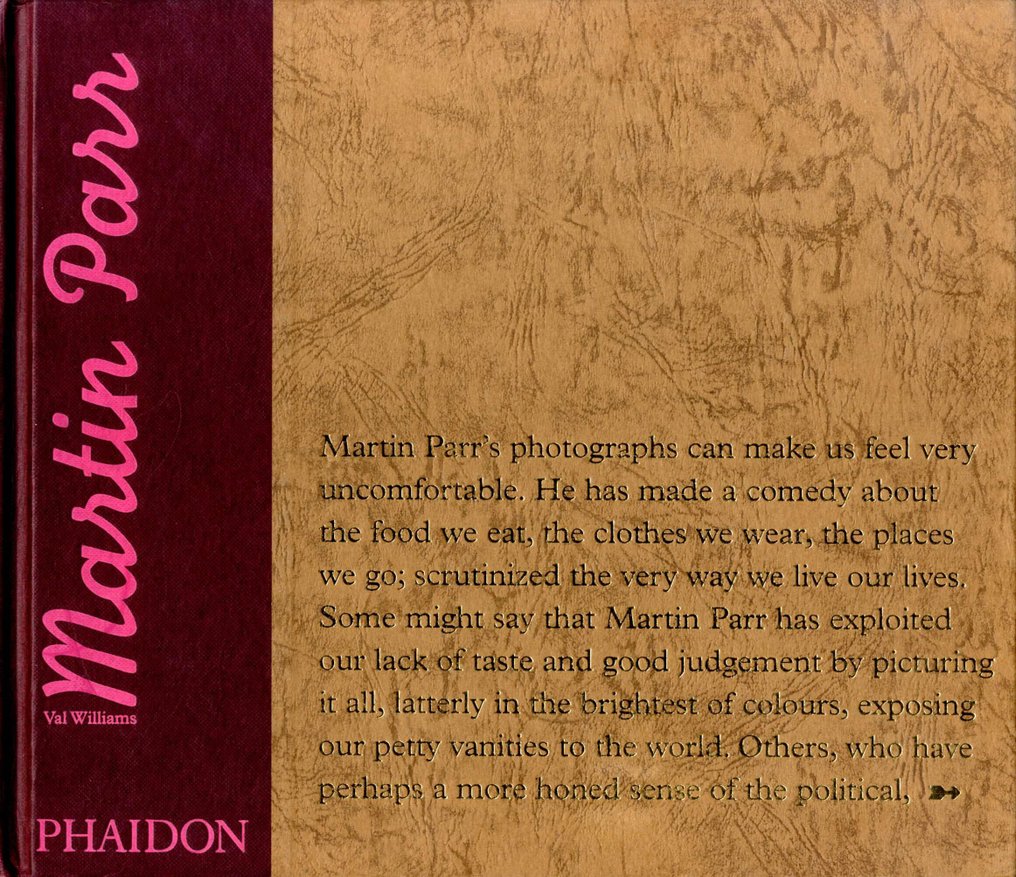 Martin Parr
Val Williams
PHAIDON
Martin Parr's photographs can make us feel very
uncomfortable. He has made a comedy about
the food we eat, the clothes we wear, the places
we go; scrutinized the very way we live our lives.
Some might say that Martin Parr has exploited
our lack of taste and good judgement by picturing
it all, latterly in the brightest of colours, exposing
our petty vanities to the world. Others, who have
perhaps a more honed sense of the political,